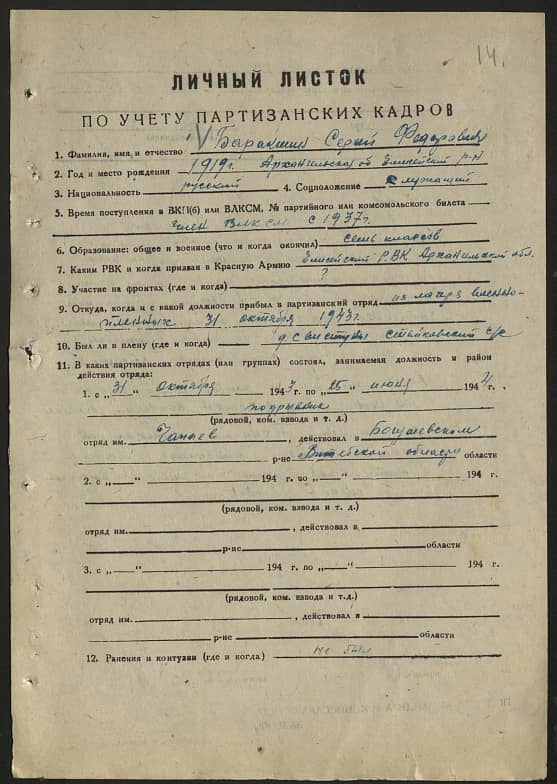 14.
ЛИЧНЫЙ ЛИСТОК
ПО УЧЕТУ ПАРТИЗАНСКИХ КАДРОВ
1. Фамилия, имя и отчество Баракшин Сергей Федорович
2. Год и место рождения 1919г. Архангельская об р-н
3. Национальность русский 4. Соцположение служащий
5. Время поступления в ВКП(б) или ВЛКСМ, № партийного или комсомольского билета
член ВЛКСМ с 1937г.
6. Образование: общее и военное (что и когда окончил) семь классов
7. Каким РВК и когда призван в Красную Армию РВК Архангельской обл.
8. Участие на фронтах (где и когда) ?
9. Откуда, когда и с какой должности прибыл в партизанский отряд из лагеря военно-
пленных 31 октября 1943г.
10. Был ли в плену (где и когда) с/с
11. В каких партизанских отрядах (или группах) состоял, занимаемая должность и район
действия отряда:
1. с „31“ октября 1943 г. по „25“ июня 1944 г.
подрывник
(рядовой, ком. взвода и т. д.)
отряд им. Чапаев, действовал в Богушевском
р-не Витебской области области
2. с „ “ 194 г. по „ “ 194 г.
(рядовой, ком. взвода и т. д.)
отряд им. , действовал в
р-не области
3. с „ “ 194 г. по „ “ 194 г.
(рядовой, ком. взвода и т.д.)
отряд им. , действовал в
р-не области
12. Ранения и контузии (где и когда) не был